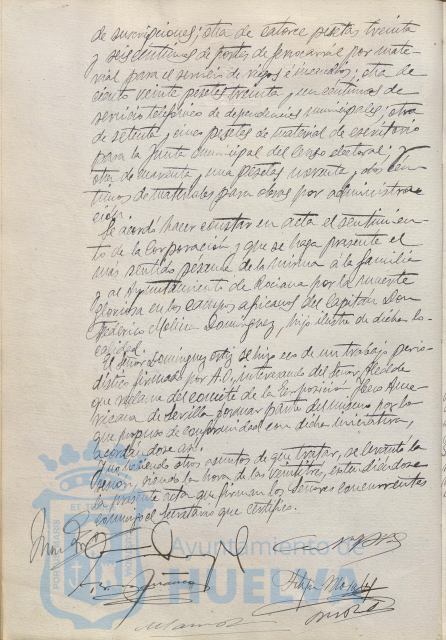 de suscripciones; otra de catorce pesetas treinta
y seis centimos de portes de ferrocarril por mate-
rial para el servicio de riegos e incendios; otra de
ciento veinte pesetas treinta y un centimos de
servicio telefonico de dependencias municipales; otra
de setenta y cinco pesetas de material de escritorio
para la Junta municipal del Censo electoral; y
otra de cuarenta y una pesetas noventa y dos cén-
timos de materiales para obras por administra-
ción.
Se acordó hacer constar en acta el sentimien-
to de la Corporación y que se haga presente el
más sentido pésame de la misma á la familia
y al Ayuntamiento de Rociana por la muerte
gloriosa en los campos africanos del Capitán Don
Federico Molina Dominguez, hijo ilustre de dicha lo-
calidad.
El señor Dominguez Ortiz se hizo eco de un trabajo perio-
distico firmado por A.O., interesando del Señor Alcalde
que recabe del comité de la Exposición Hispo Ame-
ricana de Sevilla formar parte del mismo por lo
que propuso de conformidad con dicha iniciativa,
acordandose así.
Y no habiendo otros asuntos de que tratar, se levantó la
sesión, siendo la hora de las veintitres, extendiéndose
la presente acta que firman los Señores concurrentes
conmigo el Secretario que certifico.
Ayuntamiento de
HUELVA